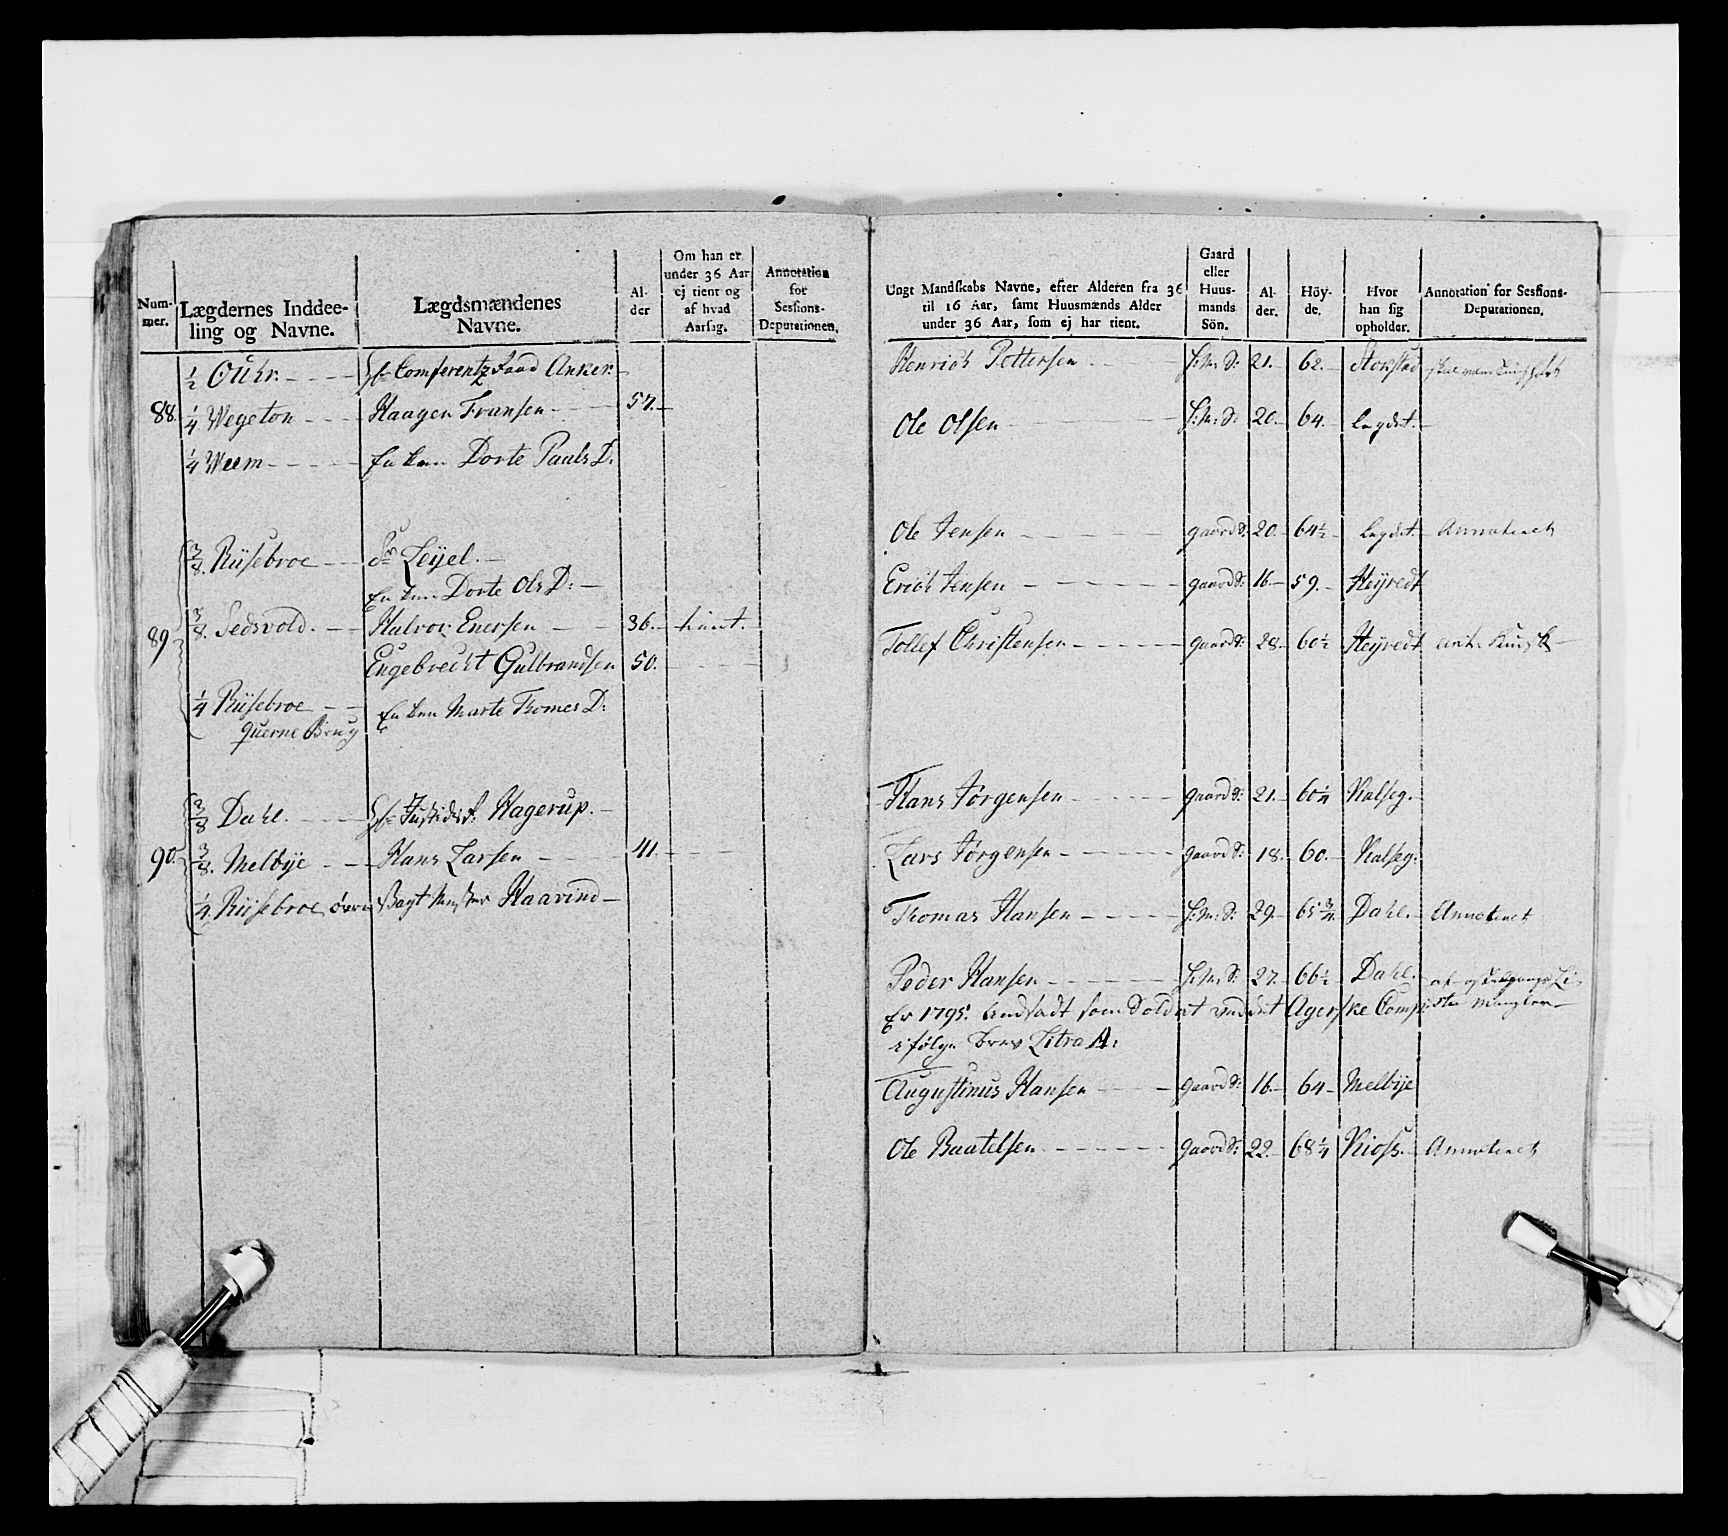 Num-
mer.
Lægdernes Inddee-
ling og Navne.
Lægdsmændenes
Navne.
Al-
der
Om han er
under 36 Aar
ej tient og
af hvad
Aarsag.
Annotation
for
Sessions-
Deputationen.
½ Ouhr. Hr Comferentz Raad Anker
88. ¼ Wegeton Haagen Fransen 57.
¼ Weem Enken Dorte Pauls D:
⅜. Riisebroe Sr Leijel.
Enken Dorte Ols D:
89 ⅜. Sedsvold. Halvor Enersen 36. tient.
Engebrecht Gulbrandsen 50.
¼ Riisebroe Enken Marte Tomes D:
querne Brug
⅜ Dahl. Hr Justids R. Hagerup.
90. ⅜. Melbije Hans Larsen 41.
¼ Riisebroe øvre Vagt Mester Haavind
Ungt Mandskabs Navne, efter Alderen fra 36
til 16 Aar, samt Huusmænds Alder
under 36 Aar, som ej har tient.
Gaard
eller
Huus-
mands
Sön.
Al-
der.
Höy-
de.
Hvor
han sig
opholder.
Annotation for Sessions-
Deputationen.
Henrich Pettersen H:M: S: 21. 62. Stokstad
Ole Olsen H:M: S: 20. 64. Legdet.
Ole Jensen gaard S: 20. 64½ Legdet. Annoteret
Erich Jensen gaard S: 16. 59. Heijredt
Tollef Christensen gaard S: 28. 60½ Heijredt
Hans Jørgensen gaard S: 21. 60¼ Kalseg.
Lars Jørgensen gaard S: 18. 60. Kalseg.
Thomas Hansen H:M: S: 29. 65¾. Dahl. Annoteret
Peder Hansen H:M: S: 27. 66½ Dahl.
Er 1795. Andsadt som Soldat ved det Agerske Comp:
ifølge brev Litra A:
Augustinus Hansen gaard S: 16. 64 Melbije
Ole Baatelsen gaard S: 22. 68¼ Kioss. Annoteret